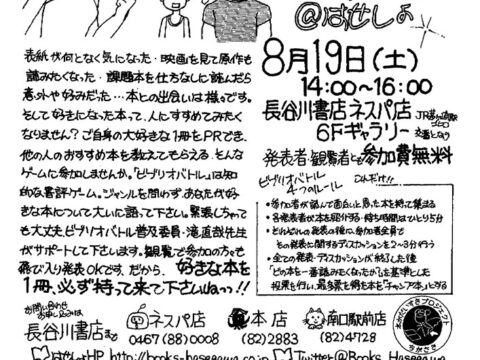 @はせしょ
8月19日(土)
14:00～16:00
長谷川書店ネスパ店
6Fギャラリー
発表者・観覧者とも参加費無料
表紙が何となく気になった・映画を見て原作も
読みたくなった・課題本を仕方なしに読んだら
意外や好みだった…本との出会いは様々です。
そして好きになった本って、人にすすめてみたく
なりません?ご自身の大好きな1冊をPRでき、
他の人のおすすめ本を教えてもらえる、そんな
ゲームに参加しませんか。「ビブリオバトル」は知
的な書評ゲーム。ジャンルを問わず、あなたが好
きな本について大いに語って下さい。緊張しちゃって
も大丈夫、ビブリオバトル普及委員・滝直哉先生
がサポートして下さいます。観覧で参加の方々も
飛び入り発表OKです。だから、好きな本を
1冊、必ず持って来て下さいねっ!!
ビブリオバトル
4つのルール
・参加者が読んで面白いと思った本を持って集まる
・各発表者が本を紹介する・持ち時間はひとり5分
・それぞれの発表の後に、参加者全員で
その発表に関するディスカッションを2～3分行う
・全ての発表・ディスカッションが終了した後
「どの本を一番読みたくなったか」を基準とした
投票を行い、最多票を得た本を「チャンプ本」とする
お問い合わせ
お申し込みは
長谷川書店まで
ネスパ店
0467(88)0008
本店
(82)2883
南口駅前店
(82)4728
はせしょHP http://books-hasegawa.co.jp
Twitter@Books_Hasegawa